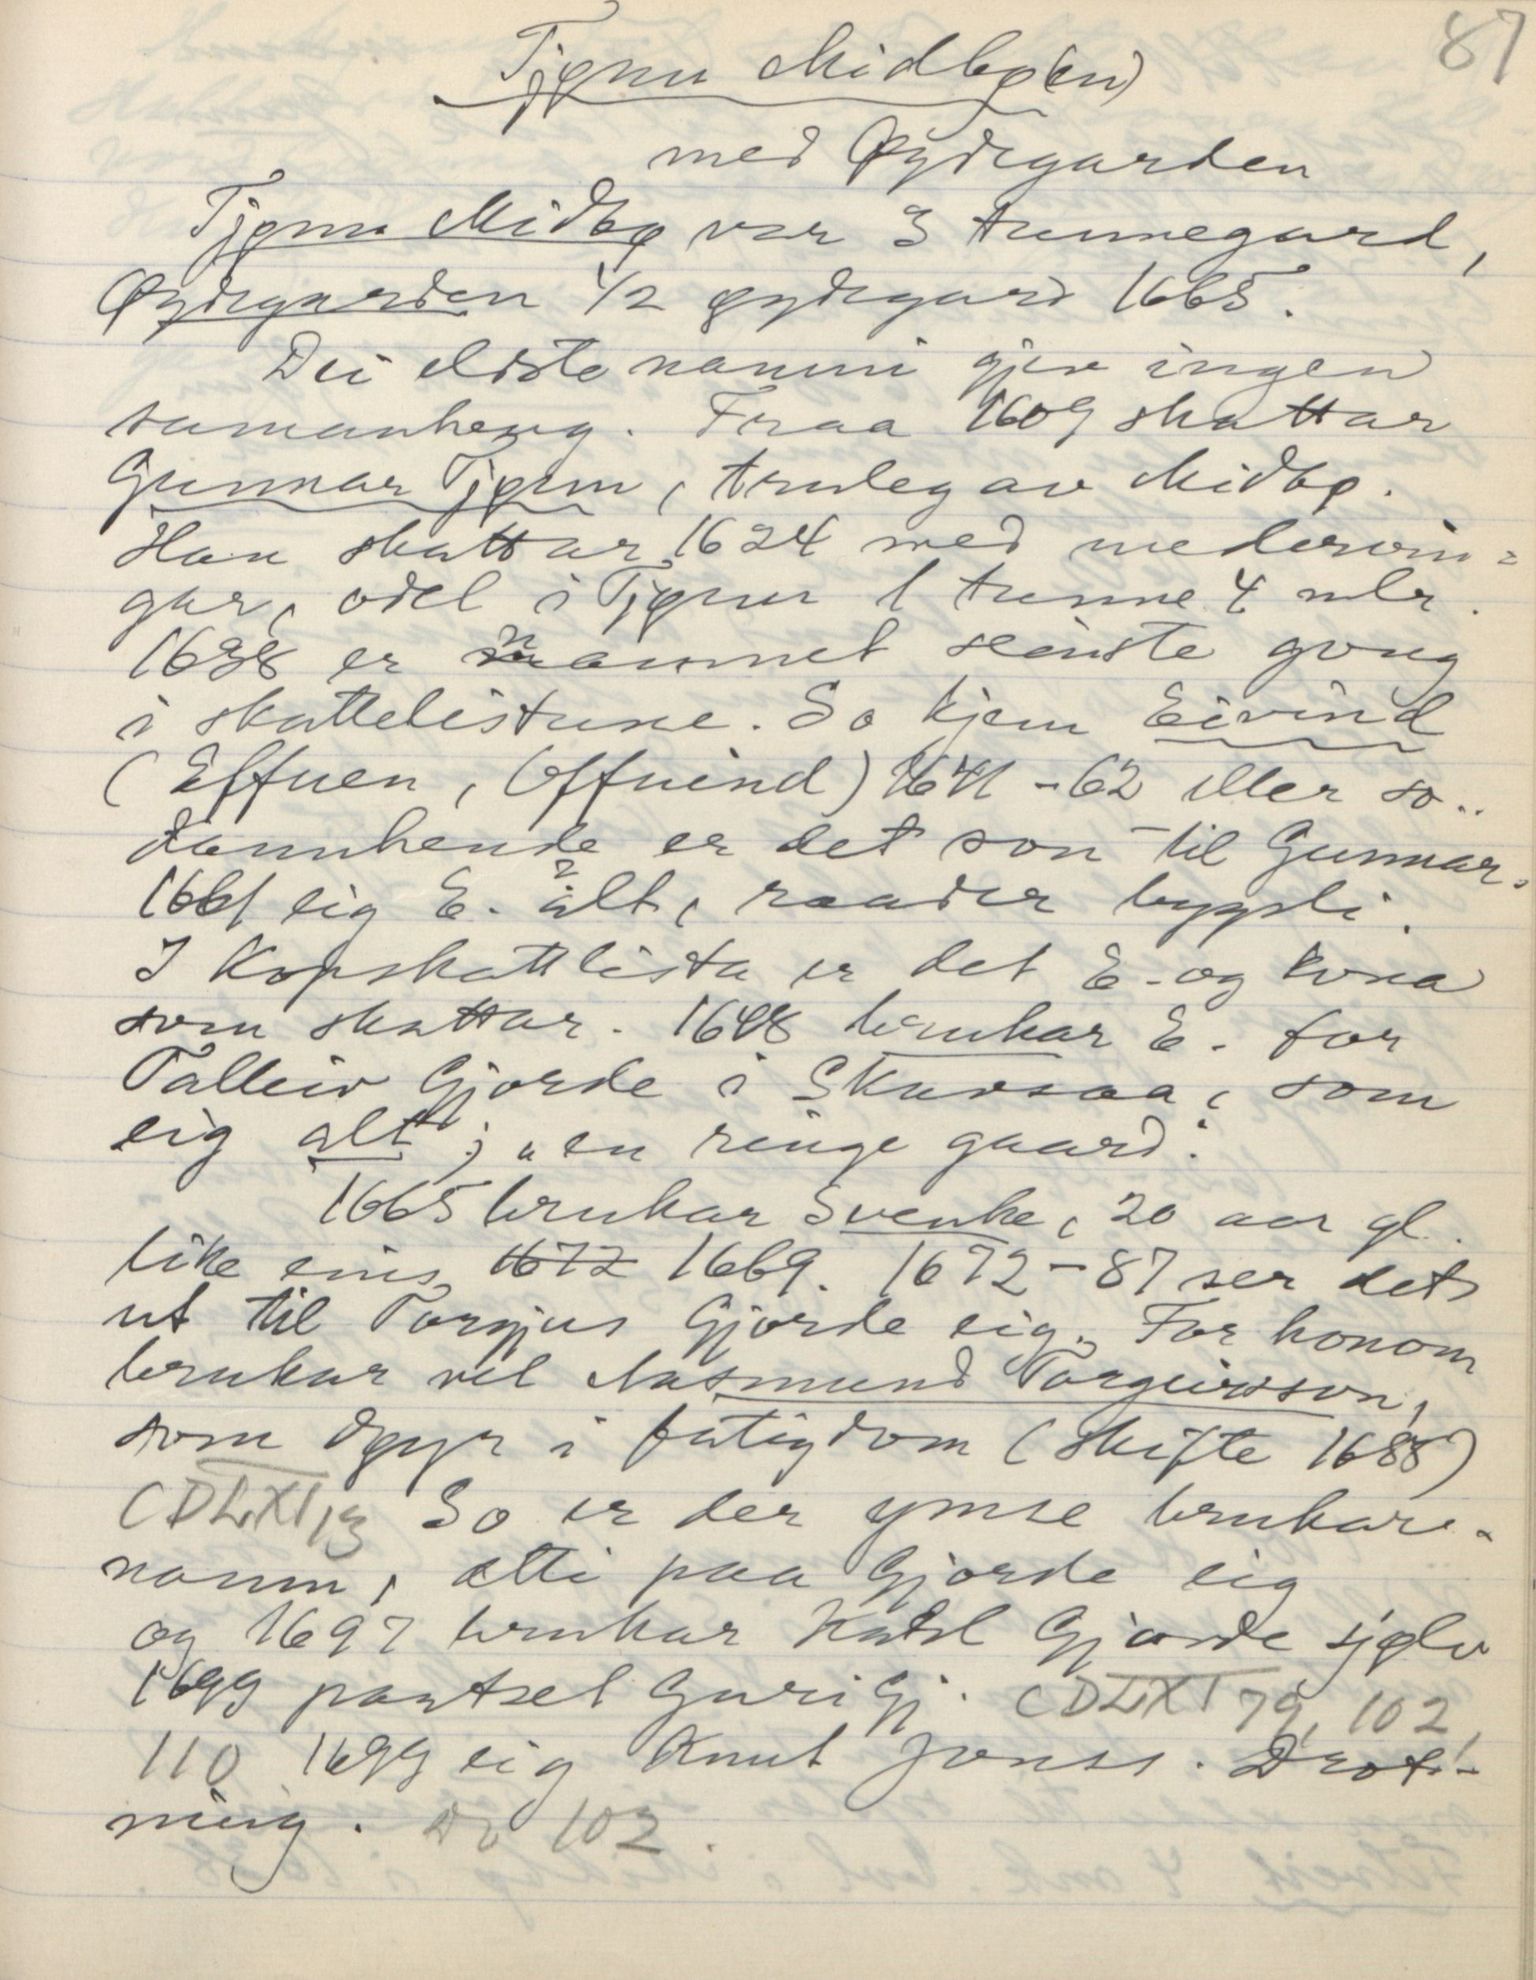 87
Tjønn Midbø(en)
med Øydegarden
Tjønn Midbø var 3 tunnegard,
Øydegarden 1/2 øydegard 1665.
Dei eldste namni gjev ingen
samanheng. Fraa 1609 skattar
Gunnar Tjønn, truleg av Midbø.
Han skattar 1624 med medervin=
gar, odel i Tjønn 1 tunne 4 mlr.
1638 er namnet seinste gong
i skattelistune. So kjem Eivind
(Effuen, Offuind) 1641-62 eller so..
Sannhende er det son til Gunnar.
1661 eig E. alt, raader bygsli.
I Kopskattlista er det E. og kona
som skattar. 1648 brukar E. for
Talleiv Gjorde i Skarsaa, som
eig alt; "en ringe gaard".
1665 brukar Svenke, 20 aar gl.
like eins 1672 1669. 1672-87 ser det
ut til Torgjus Gjorde eig. For honom
brukar vel Aasmund Torgeirsson,
som døyr i fatigdom (skifte 1688)
CDLXI 13 So er der ymse brukar-
namn, ætti paa Gjorde eig
og 1697 brukar Ketil Gjorde sjølv
1699 pantset Guri Gj. CDLXI 79, 102,
110 1699 eig Knut Jonss. Drot-
ning. Do 102.